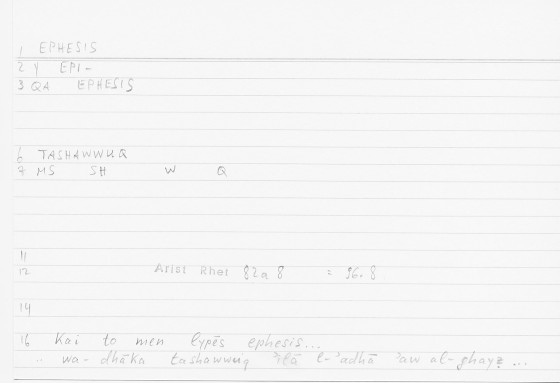 1 EPHESIS
2 Y EPI-
3 QA EPHESIS
6 TASHAWWUQ
7 MS SH W Q
11
12 Arist Rhet 82a8 = 96.8
14
16 Kai to men lypēs ephesis...
.. wa-dhāka tashawwuq ʾilā l-ʾadhā ʾaw al-ghayẓ ...